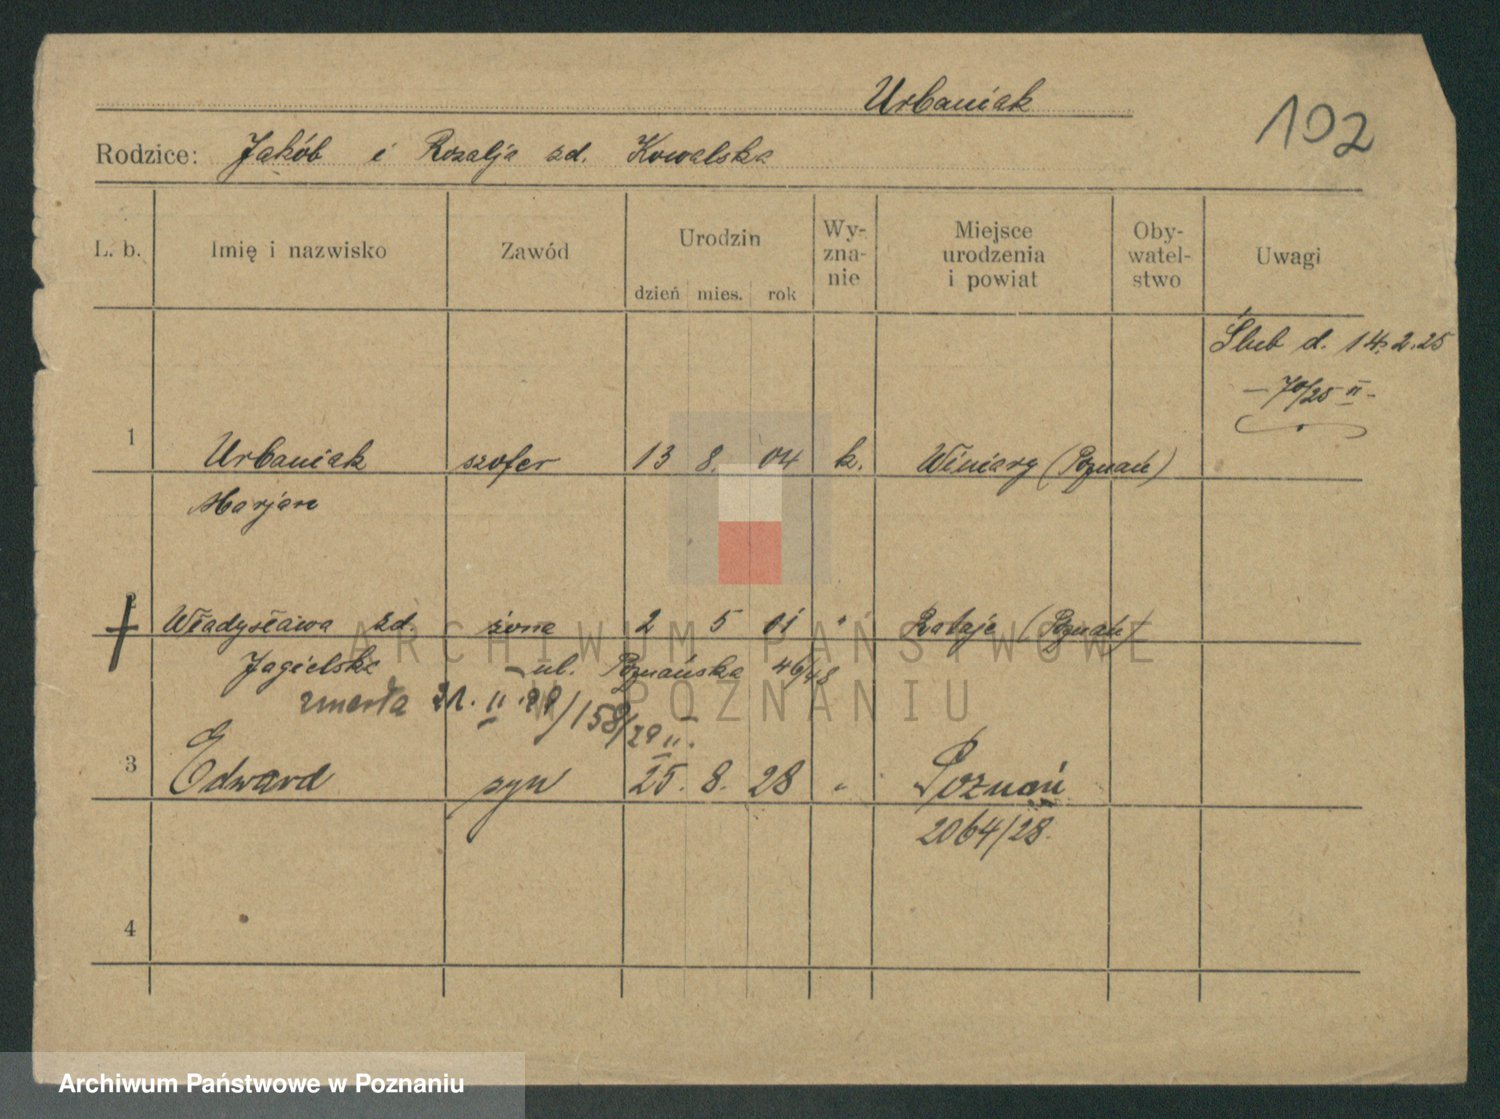 Urbaniak
102
Rodzice: Jakób i Rozalja zd. Kowalska
L. b. Imię i nazwisko Zawód Urodzin Wy-zna-nie Miejsce urodzenia i powiat Oby-watel-stwo Uwagi
dzień mies. rok
Ślub d. 14.2.25
– 70/25 II –
1 Urbaniak szofer 13 8. 04 k. Winiary (Poznań)
Marjan
2 Władysława zd. żona 2 5 01 " Rataje (Poznań)
Jagielska – ul. Poznańska 46/48
zmarła II. 29/158/29 II.
3 Edward syn 25. 8. 28 " Poznań
2064/28.
4
ARCHIWUM PAŃSTWOWE
W POZNANIU
Archiwum Państwowe w Poznaniu